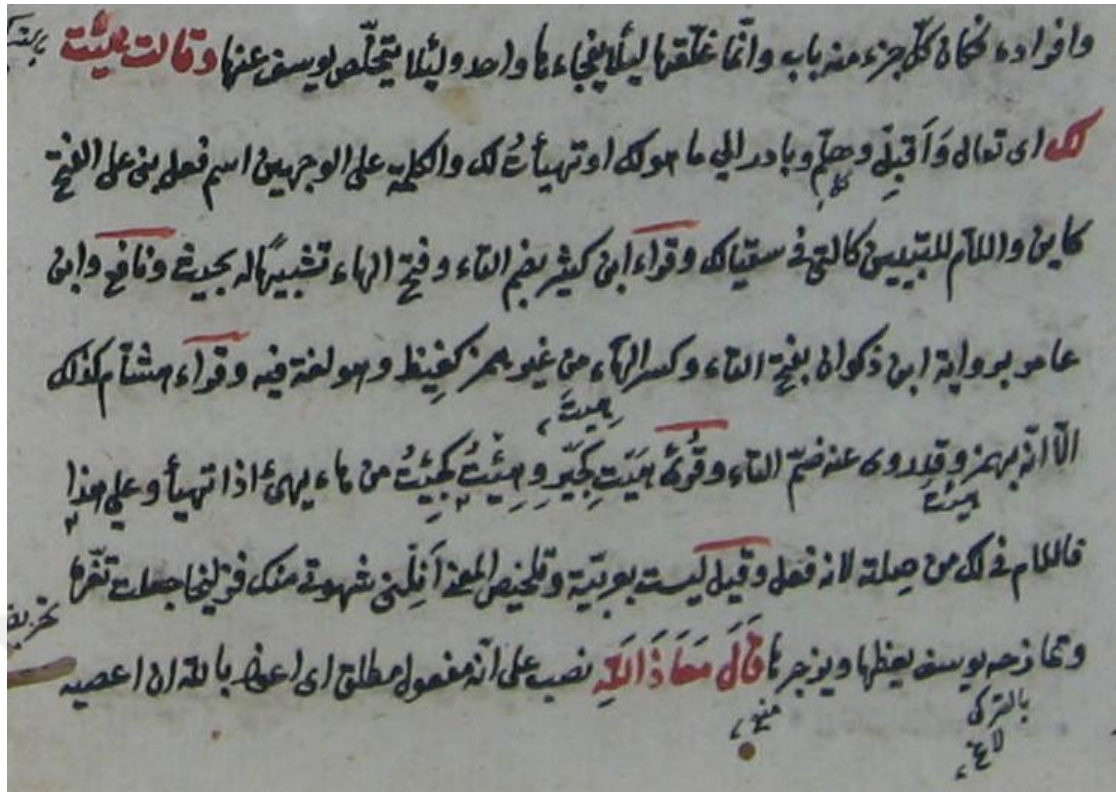 وافراده فكان كلّ جزء منه باب وانّما غلّقتها ليئلا يفجاءها واحد وليئلا يتخلّص يوسف عنها وقالت هيت
لك اى تعال وَاَقبِل وهلمّ وبادر الي ما هو لك او تهيأتُ لك والكلمة على الوجهين اسم فعل بنى على الفتح
كاين واللام للتبيين كالتى فى سقيا لك وقراء ابن كثير بضم التاء وفتح الهاء تشبيهًا له بحيث ونافع وابن
عامر برواية ابن ذكوان بفتح التاء وكسر الهاء من غير همز كغِيظ وهو لغة فيه وقراء هشام كذلك
هِيتَ
الّا انّه يهمز وقد روى عنه ضمّ التاء وقُرئَ هَيّتِ كَجَيّرِ وهِئْتُ كَجِئْتُ من هاء يهئ اذا تهيأ وعلى هذا
هيئت
فاللام فى لك من صلته لانه فعل وقيل ليست بعربيّة وتلخيص المعنى اَنِلْنى شهوتى منك فزليخا جعلت تغرّه
وتمازحه يوسف يعظها ويزجرها قَالَ مَعَاذَ اللهِ نصب على انّه مفعول مطلق اى اعوذ بالله ان اعصيه
بالتركى
منه